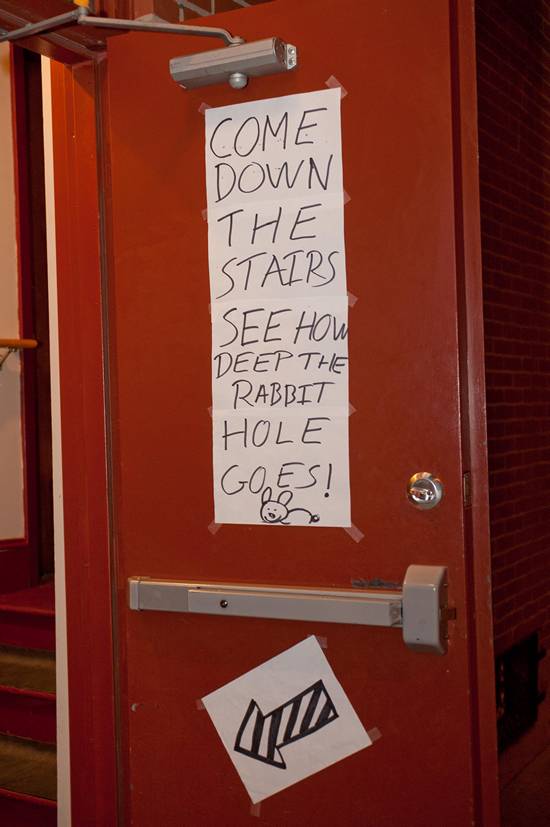 COME
DOWN
THE
STAIRS
SEE HOW
DEEP THE
RABBIT
HOLE
GOES!